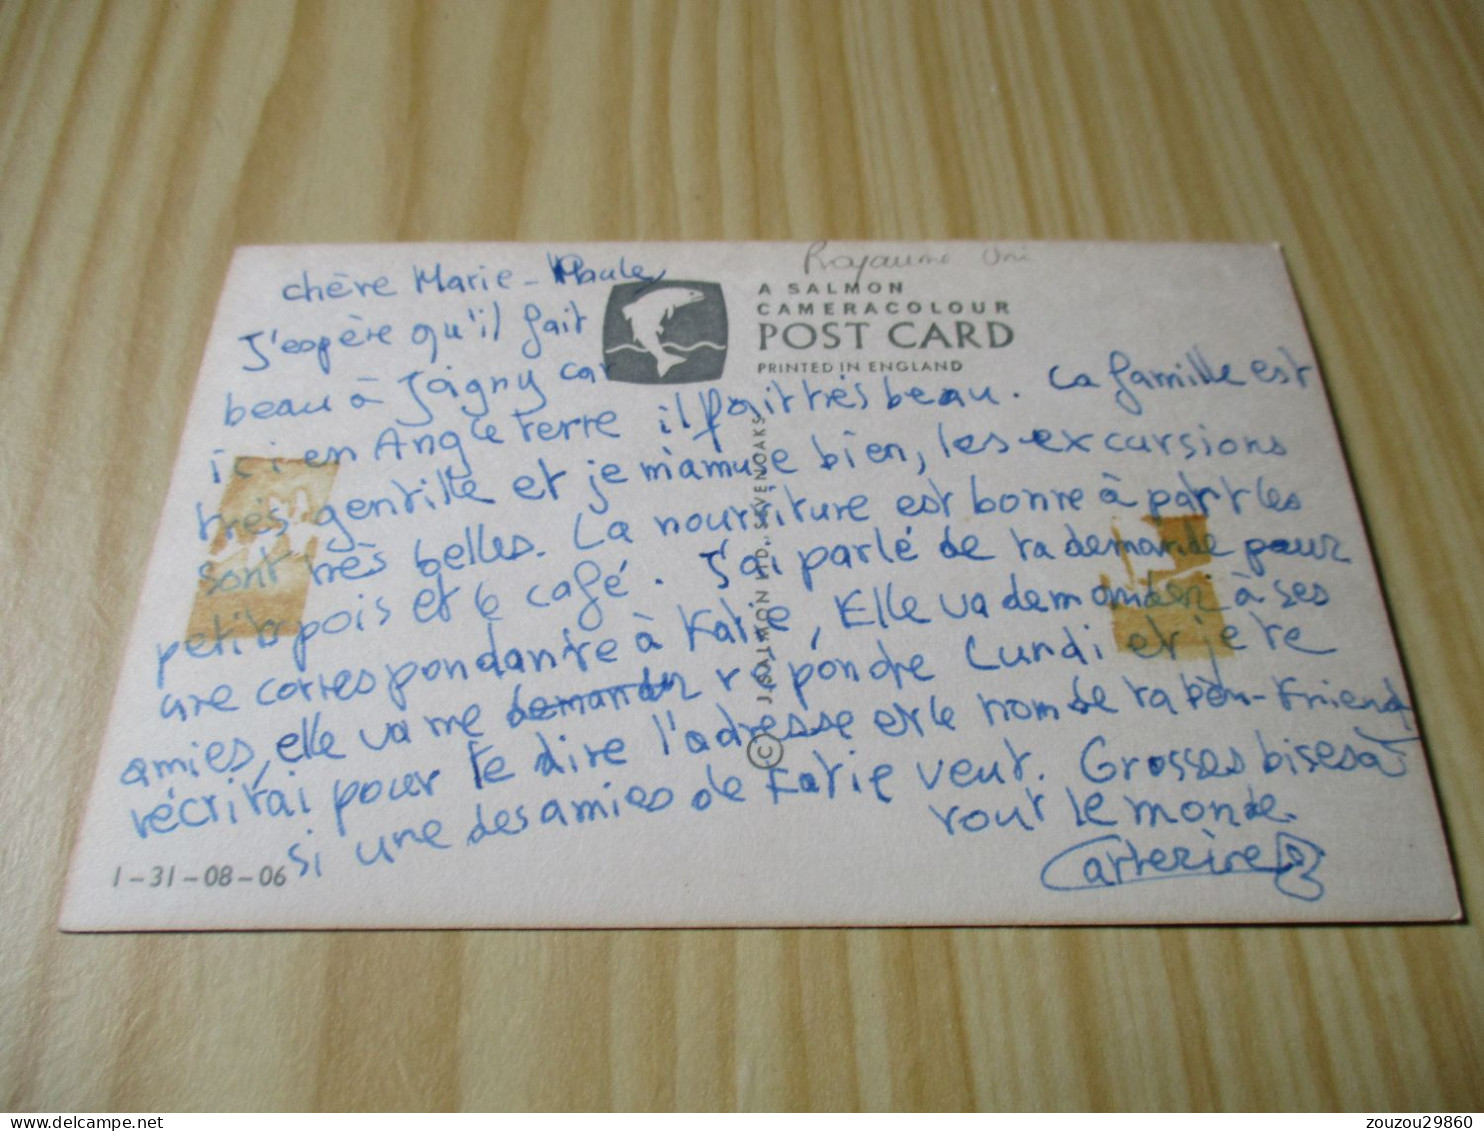 Royaume Uni
A SALMON
CAMERACOLOUR
POST CARD
PRINTED IN ENGLAND
© J. SALMON LTD., SEVENOAKS
chère Marie-Paule
J'espère qu'il fait
beau à Joigny car
ici en Angleterre il fait très beau. La famille est
très gentille et je m'amuse bien, les excursions
sont très belles. La nourriture est bonne à part les
petits pois et le café. J'ai parlé de ta demande pour
une correspondante à Katie, Elle va demander à ses
amies, elle va me demander répondre Lundi et je te
récrirai pour te dire l'adresse et le nom de ta pen-Friend
si une des amies de Katie veut. Grosses bises à
tout le monde.
Catherine
1-31-08-06
zouzou29860